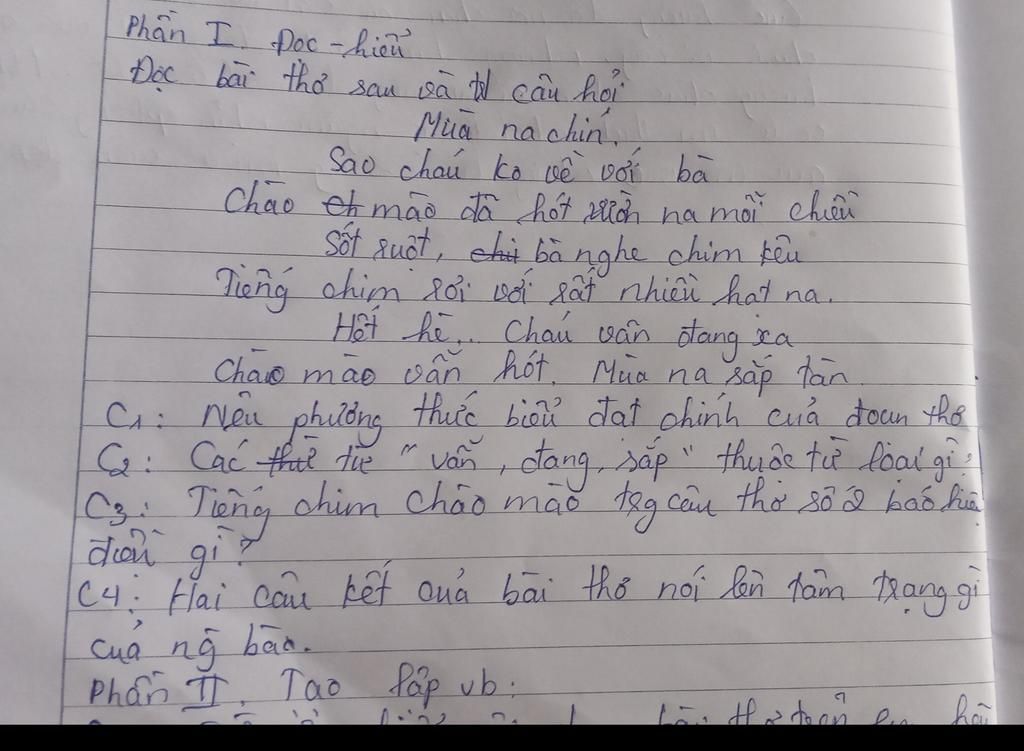 Phần I. Đọc - hiểu
Đọc bài thơ sau và tl câu hỏi
Mùa na chín.
Sao cháu ko về với bà
Chào mào đã hót vườn na mỗi chiều
Sốt ruột, bà nghe chim kêu
Tiếng chim rơi với rất nhiều hạt na.
Hết hè.. Cháu vẫn đang xa
Chào mào vẫn hót. Mùa na sắp tàn
C1: Nêu phương thức biểu đạt chính của đoạn thơ
C2: Các từ "vẫn, đang, sắp" thuộc từ loại gì?
C3: Tiếng chim chào mào trg câu thơ số 2 báo hiệu
điều gì?
C4: Hai câu kết quả bài thơ nói lên tâm trạng gì
của ng bà.
Phần II. Tạo lập vb: